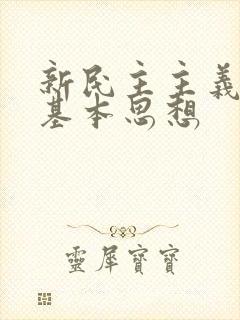 新民主主義
基本思想
靈犀寶寶